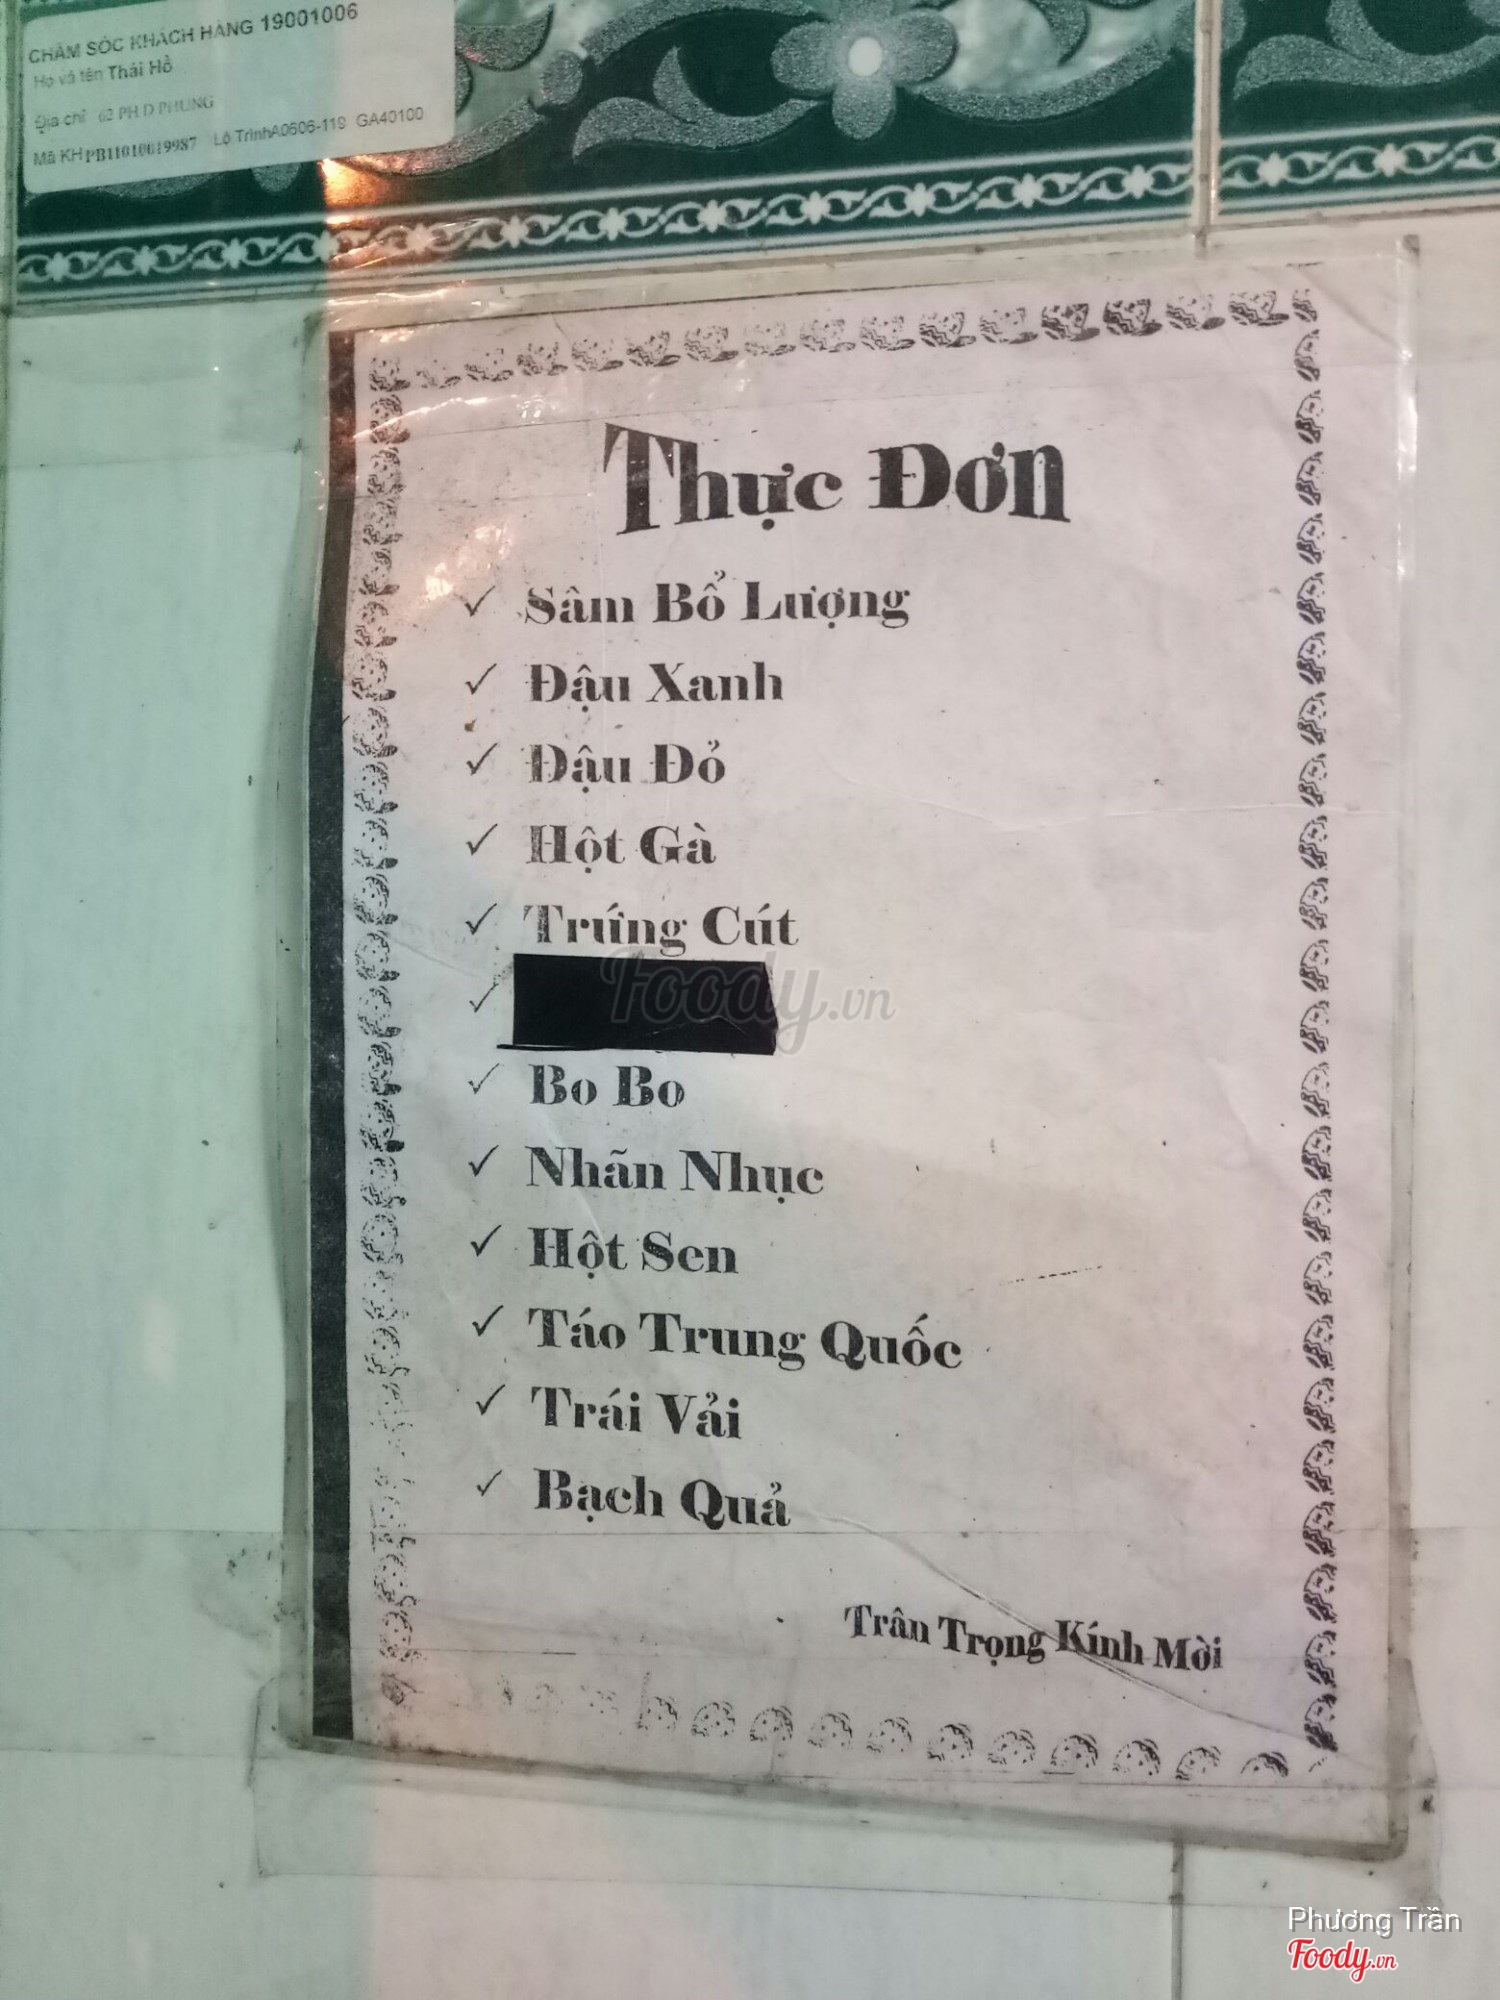 CHĂM SÓC KHÁCH HÀNG 19001006
Họ và tên Thái Hồ
Địa chỉ 62 PH D PHUNG
Mã KH PB11010019987 Lộ Trình A0606-119 GA40100
Thực Đơn
✓ Sâm Bổ Lượng
✓ Đậu Xanh
✓ Đậu Đỏ
✓ Hột Gà
✓ Trứng Cút
✓
✓ Bo Bo
✓ Nhãn Nhục
✓ Hột Sen
✓ Táo Trung Quốc
✓ Trái Vải
✓ Bạch Quả
Trân Trọng Kính Mời
Foody.vn
Phương Trần
Foody.vn